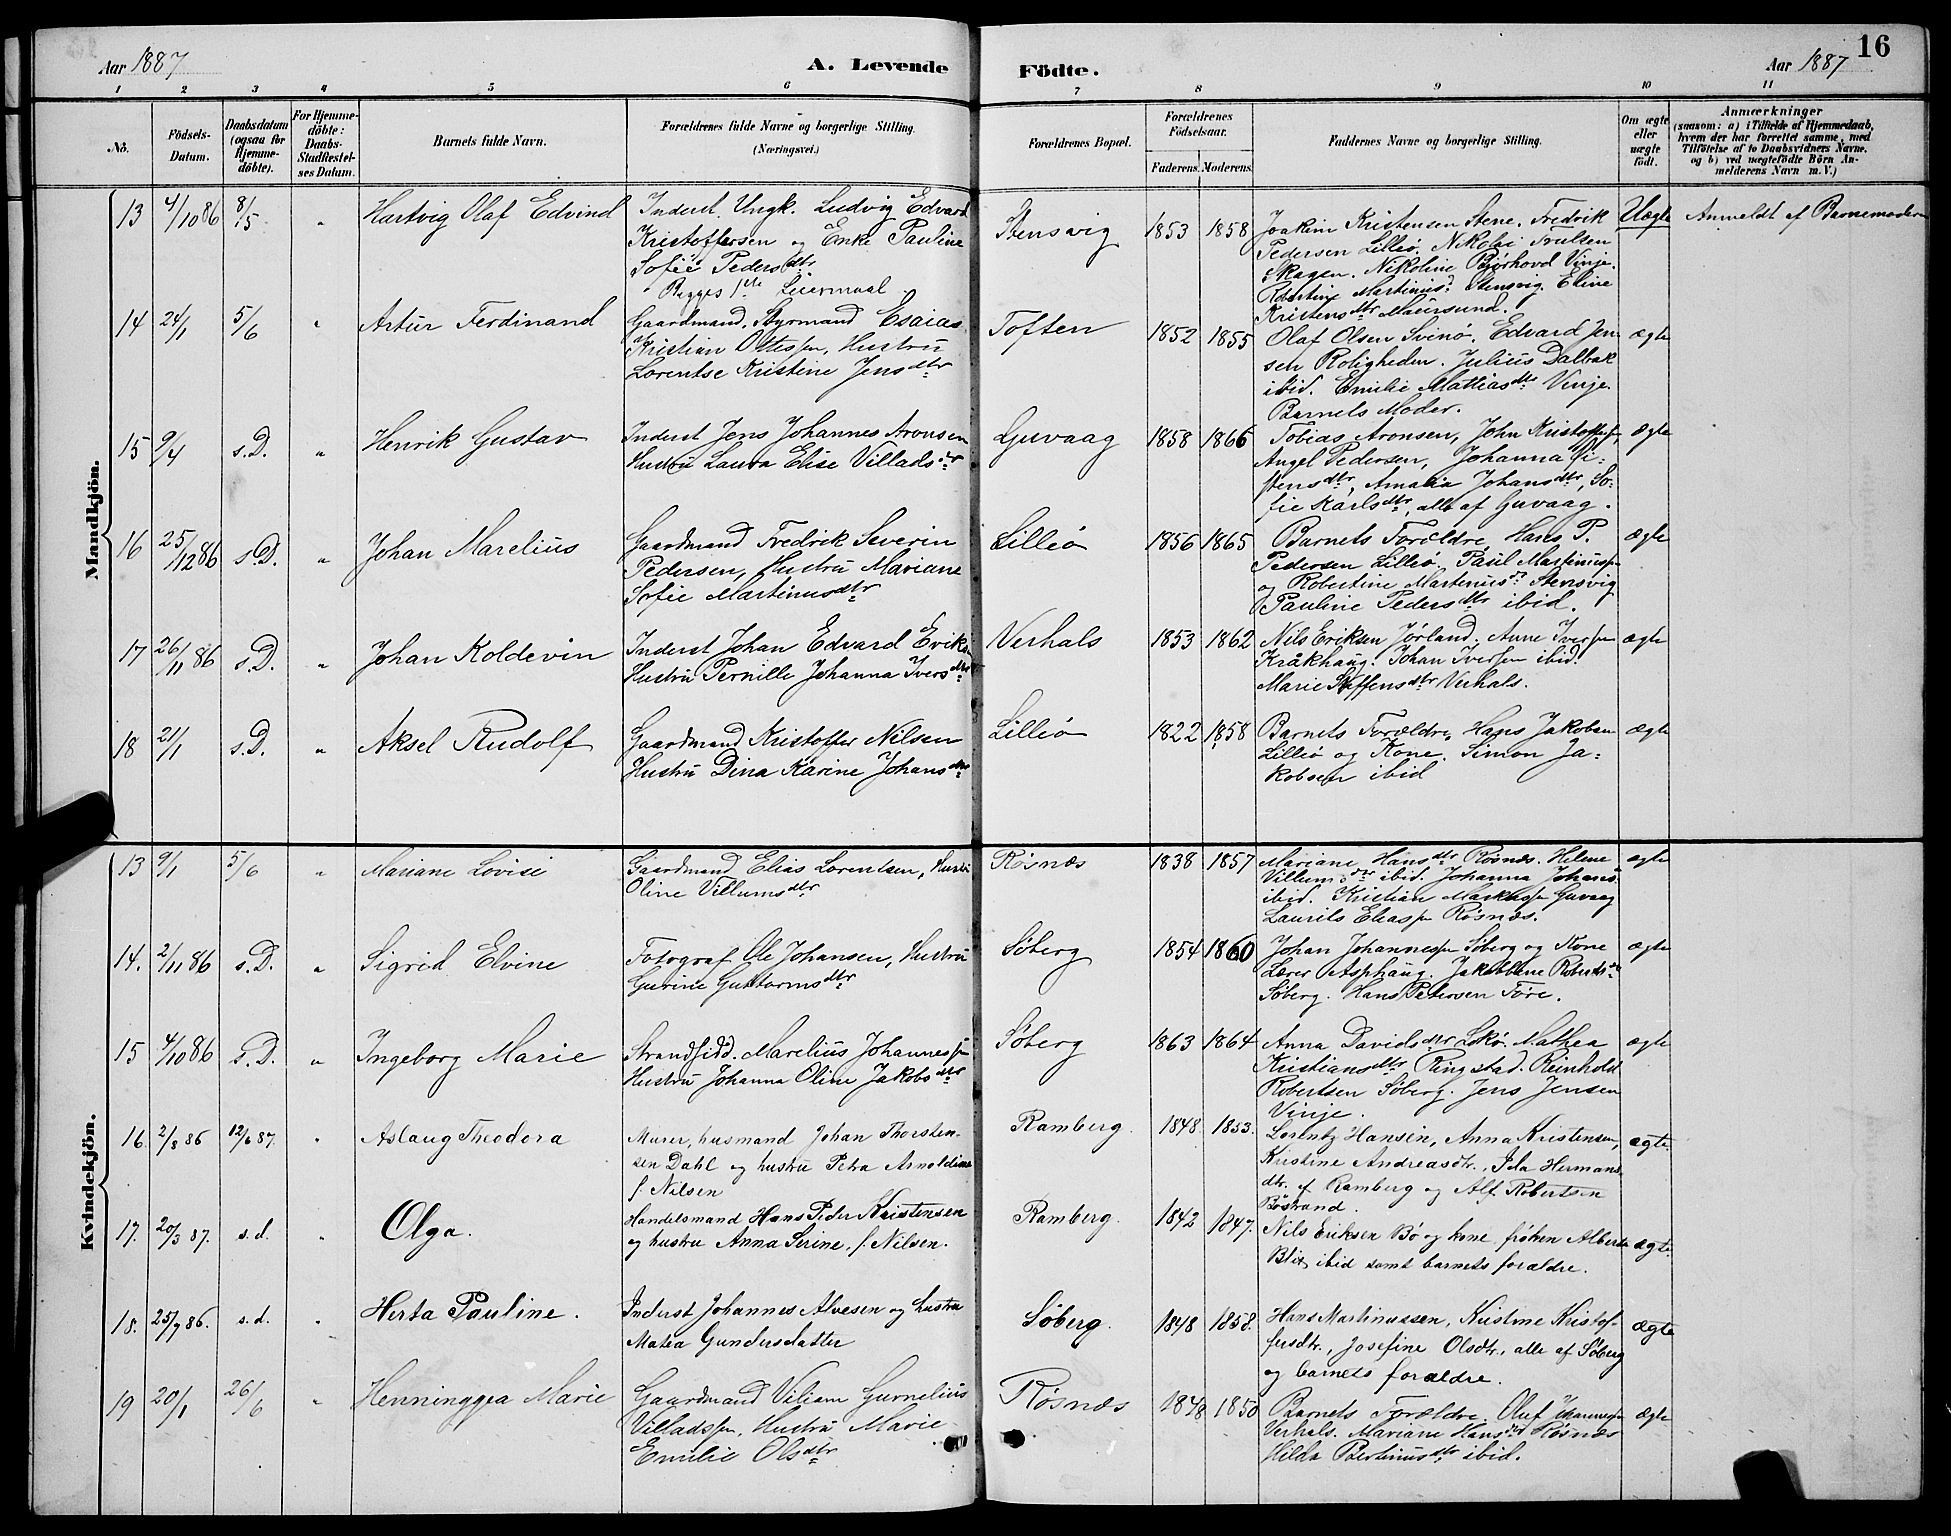 Aar 1887
A. Levende Födte.
Aar 1887
16
1 2 3 4 5 6 7 8 9 10 11
No.
Födsels-Datum.
Daabsdatum (ogsaa for Hjemme-döbte).
For Hjemme-döbte: Daabs-Stadfæstel-ses Datum.
Barnets fulde Navn.
Forældrenes fulde Navne og borgerlige Stilling. (Næringsvei.)
Forældrenes Bopæl.
Forældrenes Födselsaar.
Faderens. Moderens.
Faddernes Navne og borgerlige Stilling.
Om ægte eller uægte født.
Anmærkninger
(saasom: a) i Tilfælde af Hjemmedaab, hvem der har forrettet samme, med Tilföielse af to Daabsvidners Navne, og b) ved uægtefödte Börn An-melderens Navn m. V.)
Mandkjön.
13 4/10 86 8/5 " Hartvig Olaf Edvind
Inderst Ungk. Ludvig Edvard
Kristoffersen og Enke Pauline
Sofie Pedersdtr
Begges 1ste Leiermaal
Stensvig 1853 1858
Joakim Kristensen Stene. Fredrik
Pedersen Lilleö. Nikolai Trulsen
Skagen. Nikoline Bjørhovd Vinje.
Robertine Martinusd. Stensvig. Eline
Kristensdtr Maursund.
Uægte Anmeldt af Barnemoderen
14 24/1 5/6 " Artur Ferdinand
Gaardmand, Styrmand Esaias
Kristian Ottessen, Hustru
Lorentse Kristine Jensdtr
Toften 1852 1855
Olaf Olsen Svinø. Edvard Jen
sen Roligheden. Julius Dalbak
ibid. Emilie Mathiasdtr Vinje.
Barnets Moder.
ægte
15 9/4 s.D. " Henrik Gustav
Inderst Jens Johannes Aronsen
Hustru Laura Elise Villadsdtr
Guvaag 1858 1866
Tobias Aronsen, John Kristoffers.
Angel Pedersen, Johanna
stensdtr, Amalia Johansdtr, So-
fie Karlsdtr, alle af Guvaag.
ægte
16 25/12 86 s.D. " Johan Marelius
Gaardmand Fredrik Severin
Pedersen, Hustru Mariane
Sofie Martinusdtr
Lilleö 1856 1865
Barnets Forældre, Hans P.
Pedersen Lilleö, Paul Martinussen
og Robertine Martinusd. Stensvig
Pauline Pedersdtr ibid.
ægte
17 26/11 86 s.D. " Johan Koldevin
Inderst Johan Edvard Eriks
Hustru Pernille Johanna Iversdtr
Verhals 1853 1862
Nils Eriksen Jørland. Anne Iversen
Kråkhaug. Johan Iversen ibid.
Marie Steffensdtr Verhals.
ægte
18 21/1 s.D. " Aksel Rudolf
Gaardmand Kristoffer Nilsen
Hustru Dina Karine Johansdtr
Lilleö 1822 1858
Barnets Forældre, Hans Jakobsen
Lilleö og Kone. Simon Ja-
kobsen ibid
ægte
Kvindekjön.
13 9/1 5/6 " Mariane Lovise
Gaardmand Elias Lorentsen, Hustru
Oline Villumsdtr
Røsnæs 1838 1857
Mariane Hansdtr Røsnæs. Helene
Villumsdtr ibid. Johanna Johans.
ibid. Kristian Markussen Guvaag
Laurits Eliassen Røsnæs.
ægte
14. 2/11 86 s.D. " Sigrid Elvine
Fotograf Ole Johansen, Hustru
Gurine Guttormsdtr
Søberg 1854 1860
Johan Johannessen Søberg og Kone
Lærer Asphaug. Jakobline Robertsd.
Søberg. Hans Petersen Føre.
ægte
15 4/10 86 s.D. " Ingeborg Marie
Strandsidd. Marelius Johannessen
Hustru Johanna Oline Jakobsdtr
Søberg 1863 1864
Anna Davidsdtr Skö. Mathea
Kristiansdtr Ringstad. Reinholdt
Robertsen Søberg. Jens Jensen
Vinje.
ægte
16. 2/8 86 12/6 87. " Aslaug Theodora
Murer, husmand Johan Thorsten-
sen Dahl og hustru Petra Arnoldine
f. Nilsen
Ramberg. 1848 1853.
Lorentz Hansen, Anna Kristensen,
Kristine Andreasdtr., Ida Hermans
dtr. af Ramberg og Alf. Robertsen
Bøstrand.
ægte.
17. 20/3 87. s.d. " Olga.
Handelsmand Hans Peder Kristensen
og hustru Anna Serine, f. Nilsen.
Ramberg. 1842 1847.
Nils Eriksen Bø og kone, frøken Alberta
Blix ibid samt barnets forældre.
ægte.
18. 25/7 86. s.d. " Herta Pauline.
Inderst Johannes Alvesen og hustru
Matea Gundersdatter
Søberg. 1848 1858.
Hans Martinussen, Kristine Kristof-
fersdtr., Josefine Olsdtr., alle af Søberg
og barnets forældre.
ægte
19 20/1 26/6 " Henninggea Marie
Gaardmand Viliam Gurnelius
Villadssen, Hustru Marie
Emilie Olsdtr
Røsnæs 1848 1850
Barnets Forældre. Oluf Johannessen
Verhals. Mariane Hansdtr Røsnæs
Hilda Bertinusdtr ibid.
ægte